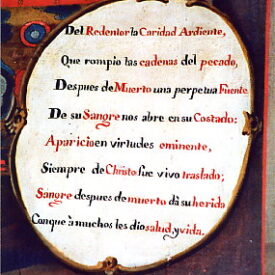 Del Redentor la Caridad Ardiente,
Que rompio las cadenas del pecado,
Despues de Muerto una perpetua Fuente
De su Sangre nos abre en su Costado:
Aparicio en virtudes eminente,
Siempre de Christo fue vivo traslado;
Sangre despues de muerto dà su herida
Conque à muchos les dio salud, y vida.